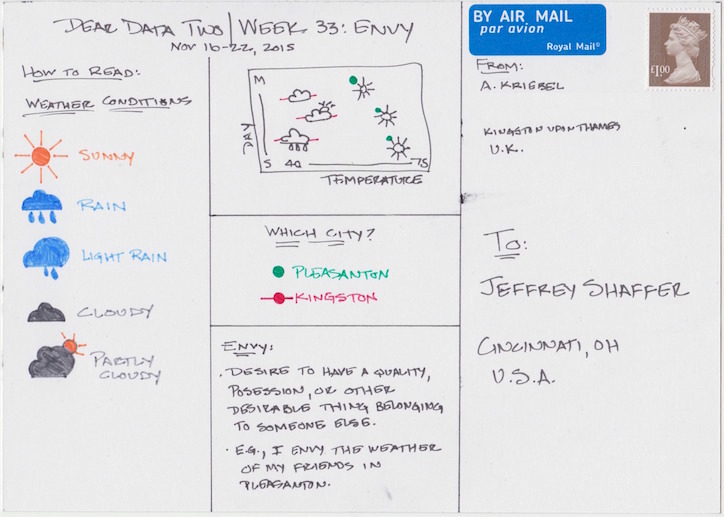 DEAR DATA TWO | WEEK 33: ENVY
NOV 16-22, 2015
HOW TO READ:
WEATHER CONDITIONS
SUNNY
RAIN
LIGHT RAIN
CLOUDY
PARTLY
CLOUDY
M
DAY
S 40 75
TEMPERATURE
WHICH CITY?
PLEASANTON
KINGSTON
ENVY:
· DESIRE TO HAVE A QUALITY,
POSESSION, OR OTHER
DESIRABLE THING BELONGING
TO SOMEONE ELSE.
· E.G., I ENVY THE WEATHER
OF MY FRIENDS IN
PLEASANTON.
BY AIR MAIL
par avion
Royal Mail®
£1.00
FROM:
A. KRIEBEL
KINGSTON UPON THAMES
U.K.
TO:
JEFFREY SHAFFER
CINCINNATI, OH
U.S.A.